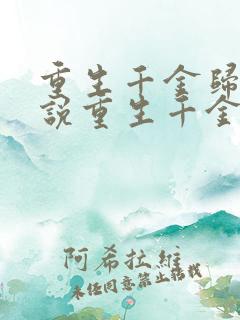 重生千金歸
說重生千金
阿希拉維
未經同意禁止轉載